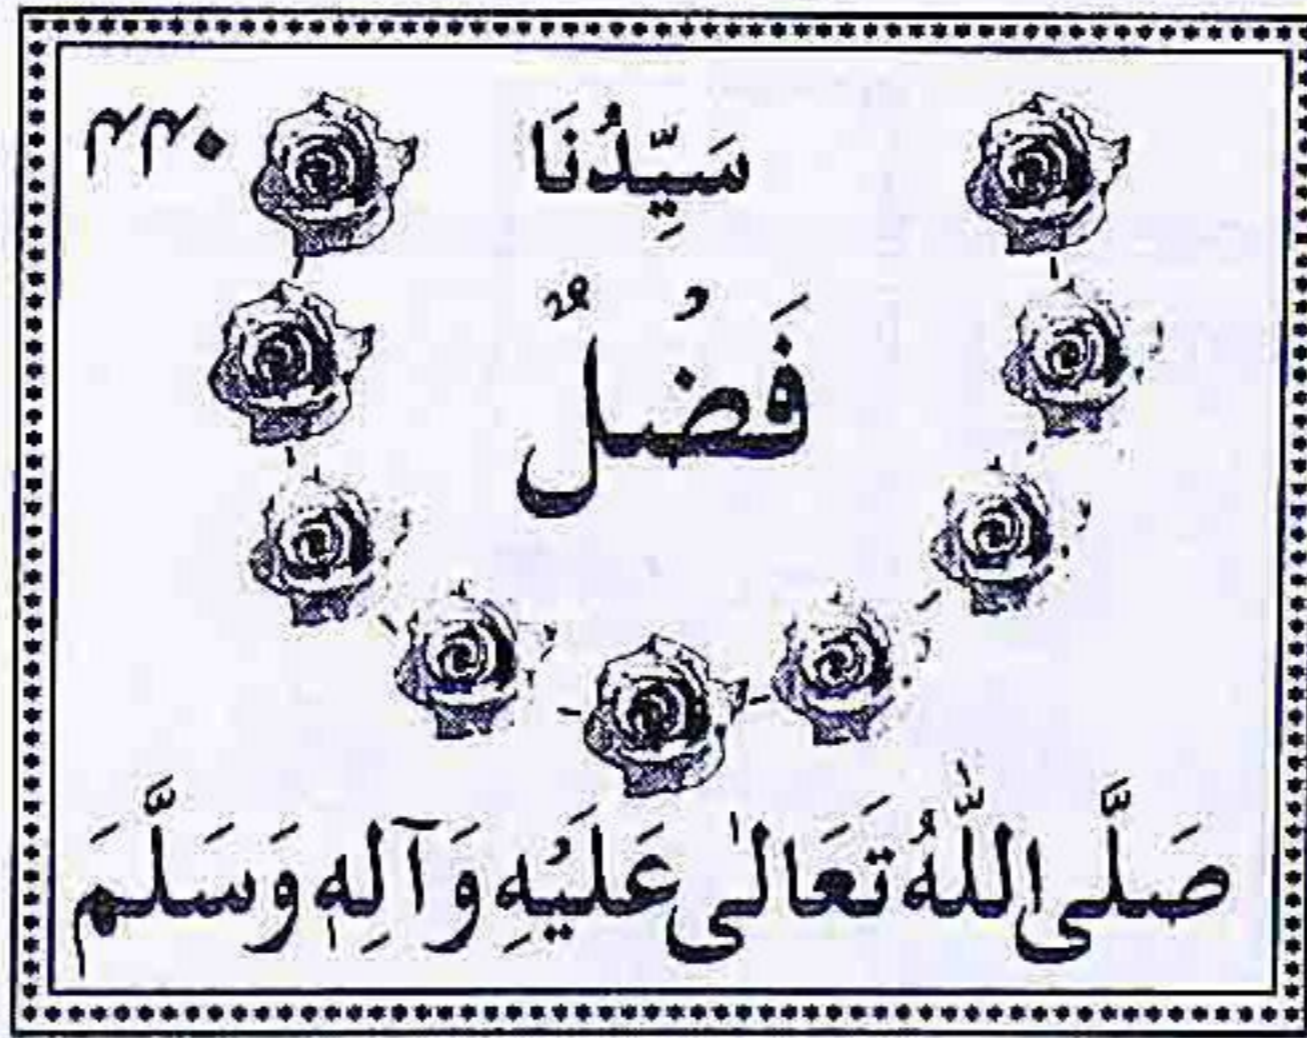 سَيِّدُنَا ۴۴۰
فَضْلٌ
صَلَّى اللّٰهُ تَعَالىٰ عَلَيْهِ وَآلِهٖ وَسَلَّمَ